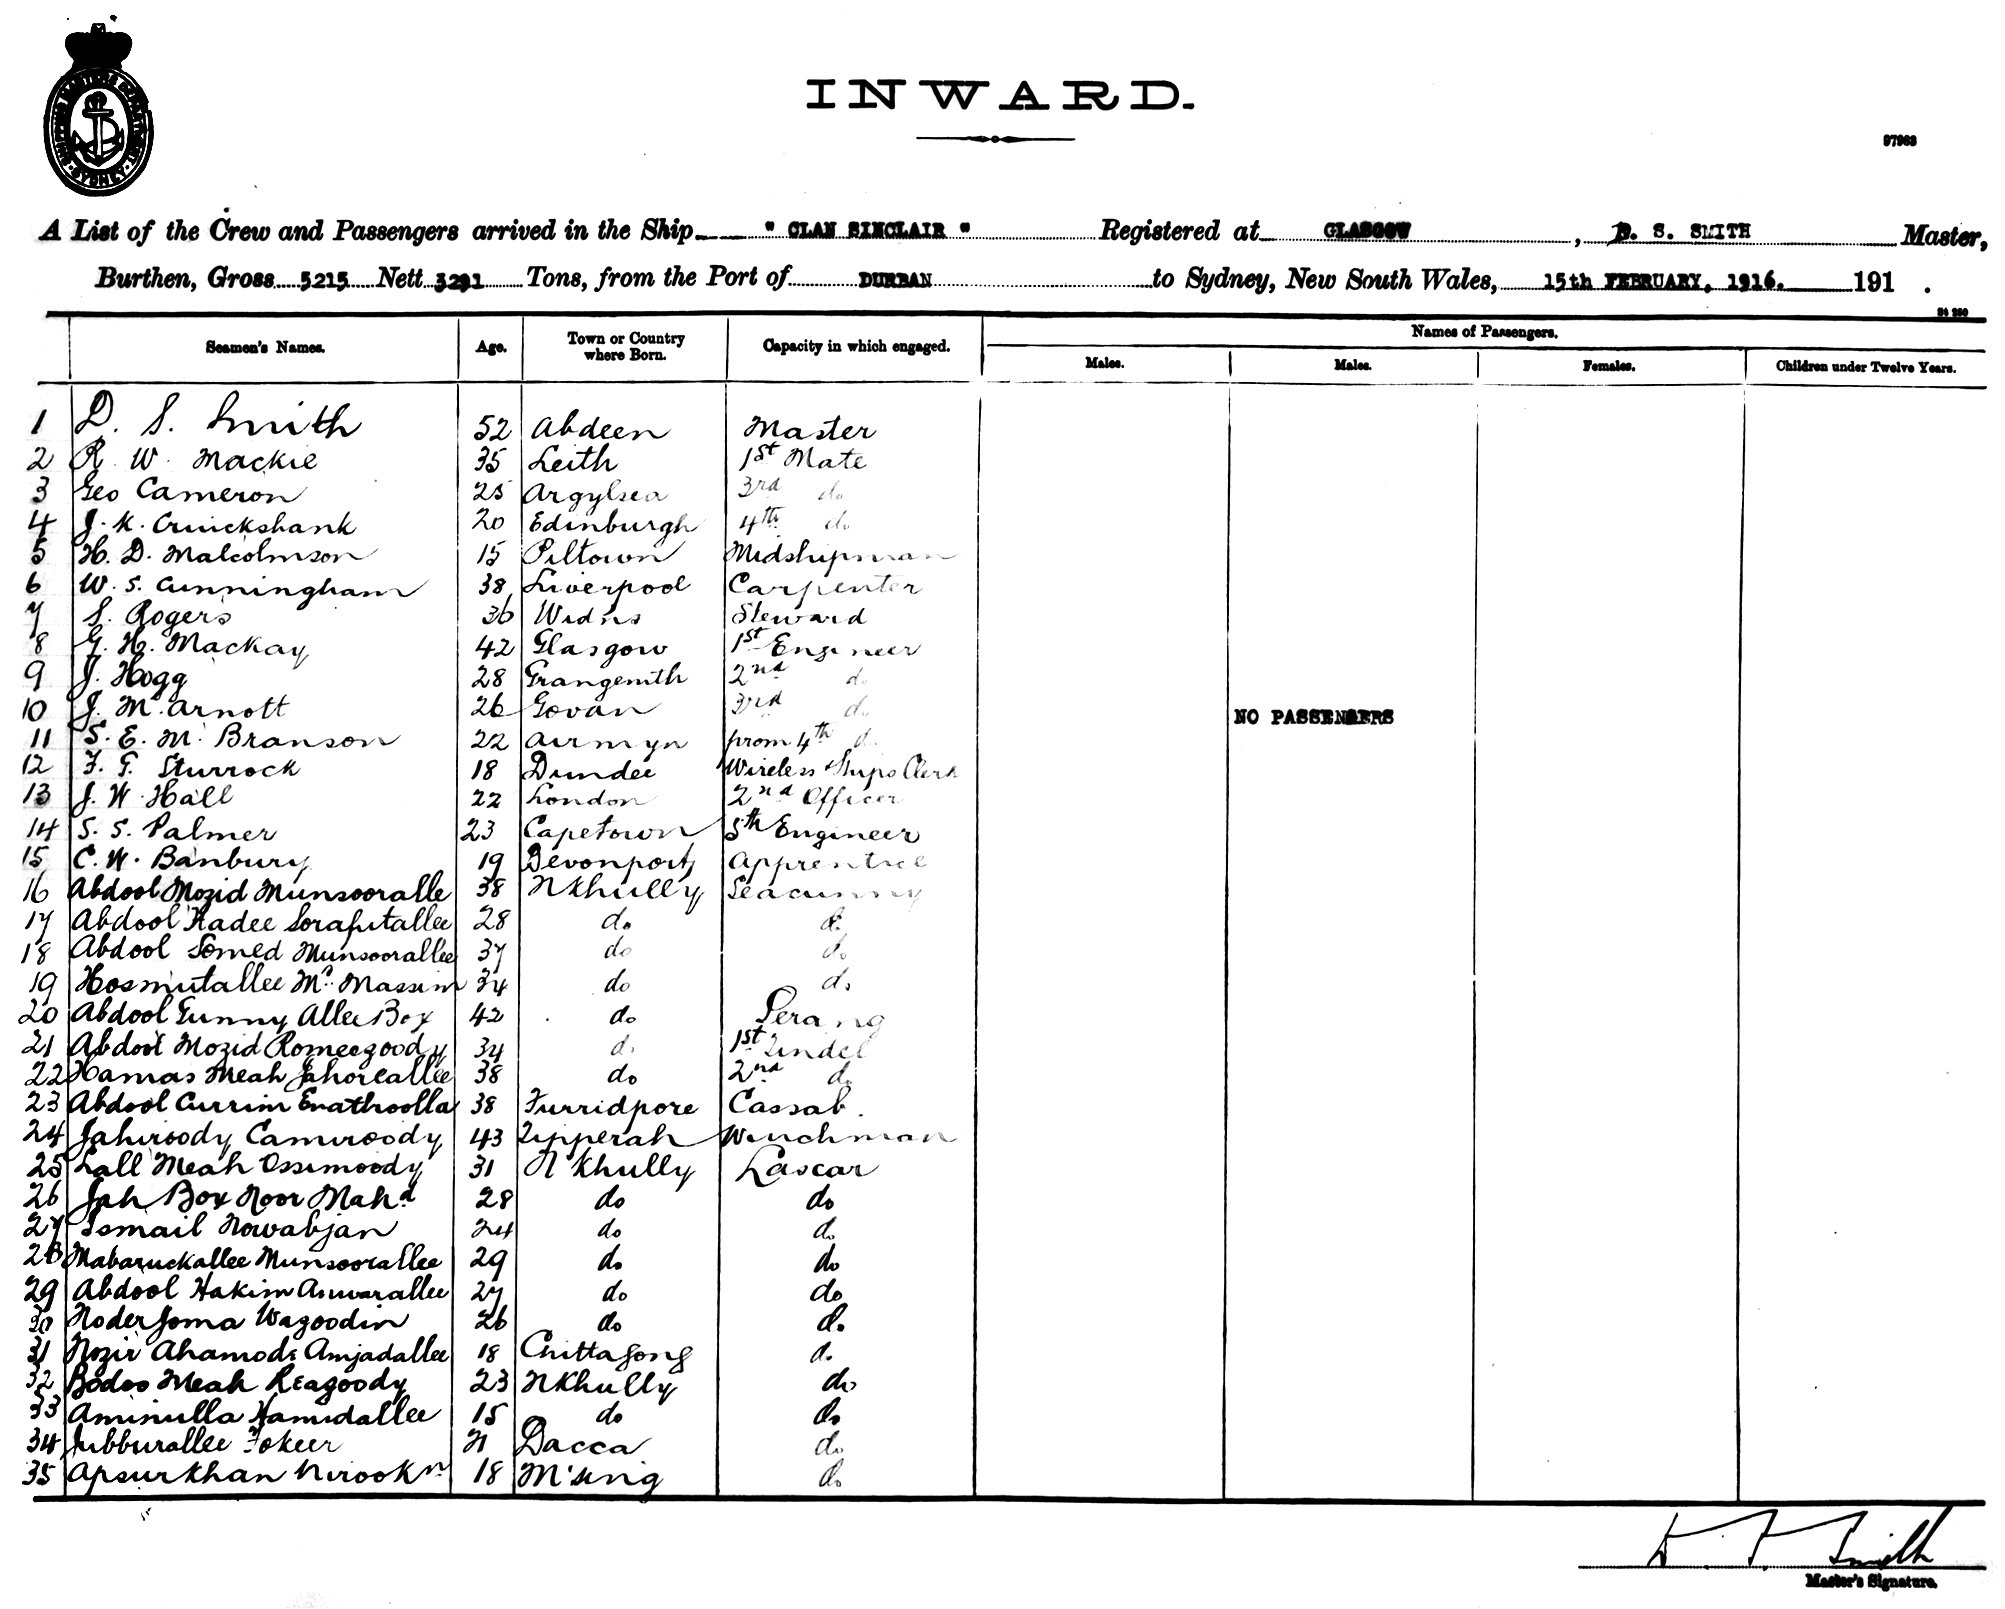 SHIPPING MASTERS DEPARTMENT SYDNEY
INWARD.
97963
A List of the Crew and Passengers arrived in the Ship "CLAN SINCLAIR" Registered at GLASGOW, D. S. SMITH Master,
Burthen, Gross 5215 Nett 3291 Tons, from the Port of DURBAN to Sydney, New South Wales, 15th FEBRUARY, 1916. 191 .
Names of Passengers.
Seamen's Names. Age. Town or Country where Born. Capacity in which engaged. Males. Males. Females. Children under Twelve Years.
1 D. S. Smith 52 Abdeen Master
2 R. W. Mackie 35 Leith 1st Mate
3 Geo Cameron 25 Argylsea 3rd do
4 J. K. Cruickshank 20 Edinburgh 4th do
5 H. D. Malcolmson 15 Piltown Midshipman
6 W. S. Cunningham 38 Liverpool Carpenter
7 S. Rogers 36 Widns Steward
8 G. H. Mackay 42 Glasgow 1st Engineer
9 J. Hogg 28 Grangemth 2nd do
10 J. M. Arnott 26 Govan 3rd do
NO PASSENGERS
11 S. E. M. Branson 22 Airmyn from 4th do
12 F. G. Sturrock 18 Dundee Wireless & Ships Clerk
13 J. W. Hall 22 London 2nd Officer
14 S. S. Palmer 23 Capetown 5th Engineer
15 C. W. Banbury 19 Devonport Apprentice
16 Abdool Mozid Munsooralle 38 N Khully Seacunny
17 Abdool Kadee Sorafutallee 28 do do
18 Abdool Somed Munsoorallee 37 do do
19 Hosmutallee Mc. Massim 34 do do
20 Abdool Gunny Allee Box 42 do Serang
21 Abdool Mozid Romeezoody 34 do 1st Tindel
22 Hamas Meah Jahoreallee 38 do 2nd do
23 Abdool Currim Enathoolla 38 Furridpore Cassab.
24 Jahiroody Camiroody 43 Tipperah Winchman
25 Lall Meah Ossimoody 31 N Khully Lascar
26 Jah Box Noor Mahd 28 do do
27 Ismail Nowabjan 24 do do
28 Mabaruckallee Munsoorallee 29 do do
29 Abdool Hakim Anwarallee 27 do do
30 Noder Joma Wagoodin 26 do do
31 Nozir Ahamode Amjadallee 18 Chittagong do
32 Bodoo Meah Reazoody 23 N Khully do
33 Aminulla Hamidallee 15 do do
34 Jubburallee Fokeer 21 Dacca do
35 Apsurkhan 18 M'sing do
D. S. Smith
Master's Signature.